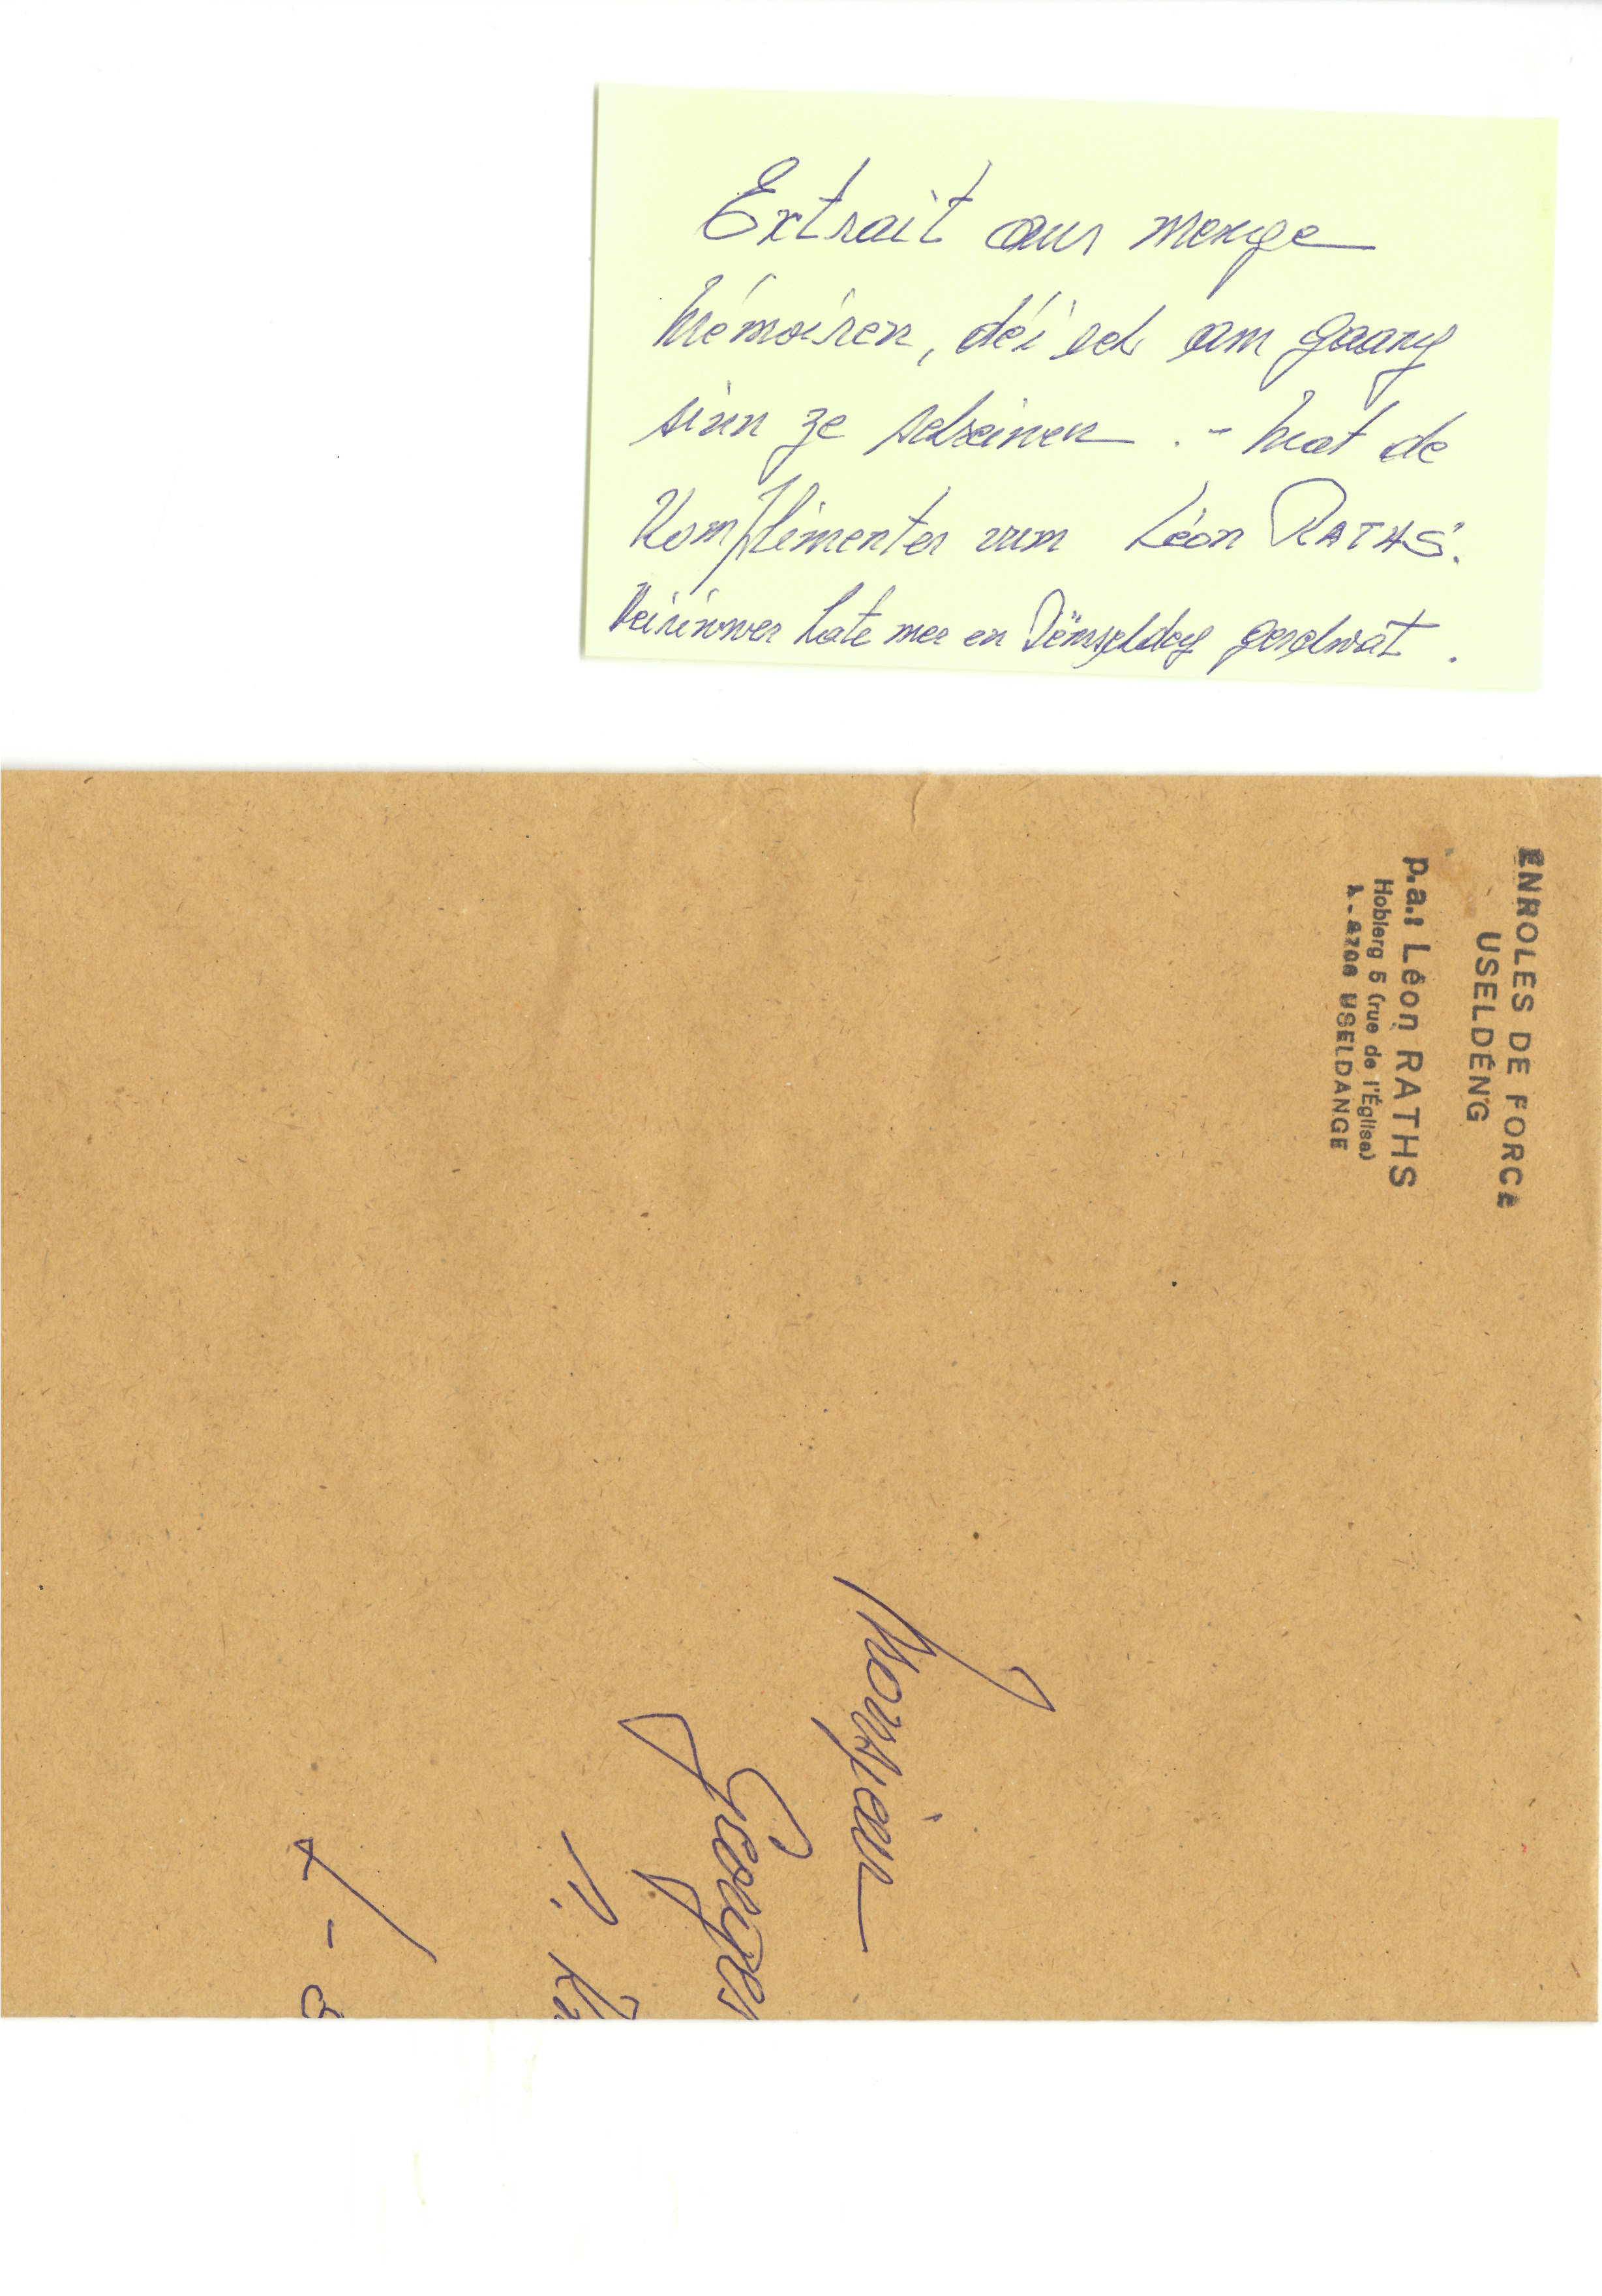 Extrait aus menge
Mémoiren, déi ech am gaang
sinn ze schreiwen. - Mat de
Komplimenter vum Léon RATHS.
Doriwwer hate mer en Dënschdeg geschwat.
ENROLÉS DE FORCE
USELDÉNG
p.a.: Léon RATHS
Hobierg 5 (rue de l'Église)
L-8706 USELDANGE
Monsieur
Georges
P. Ki
L -